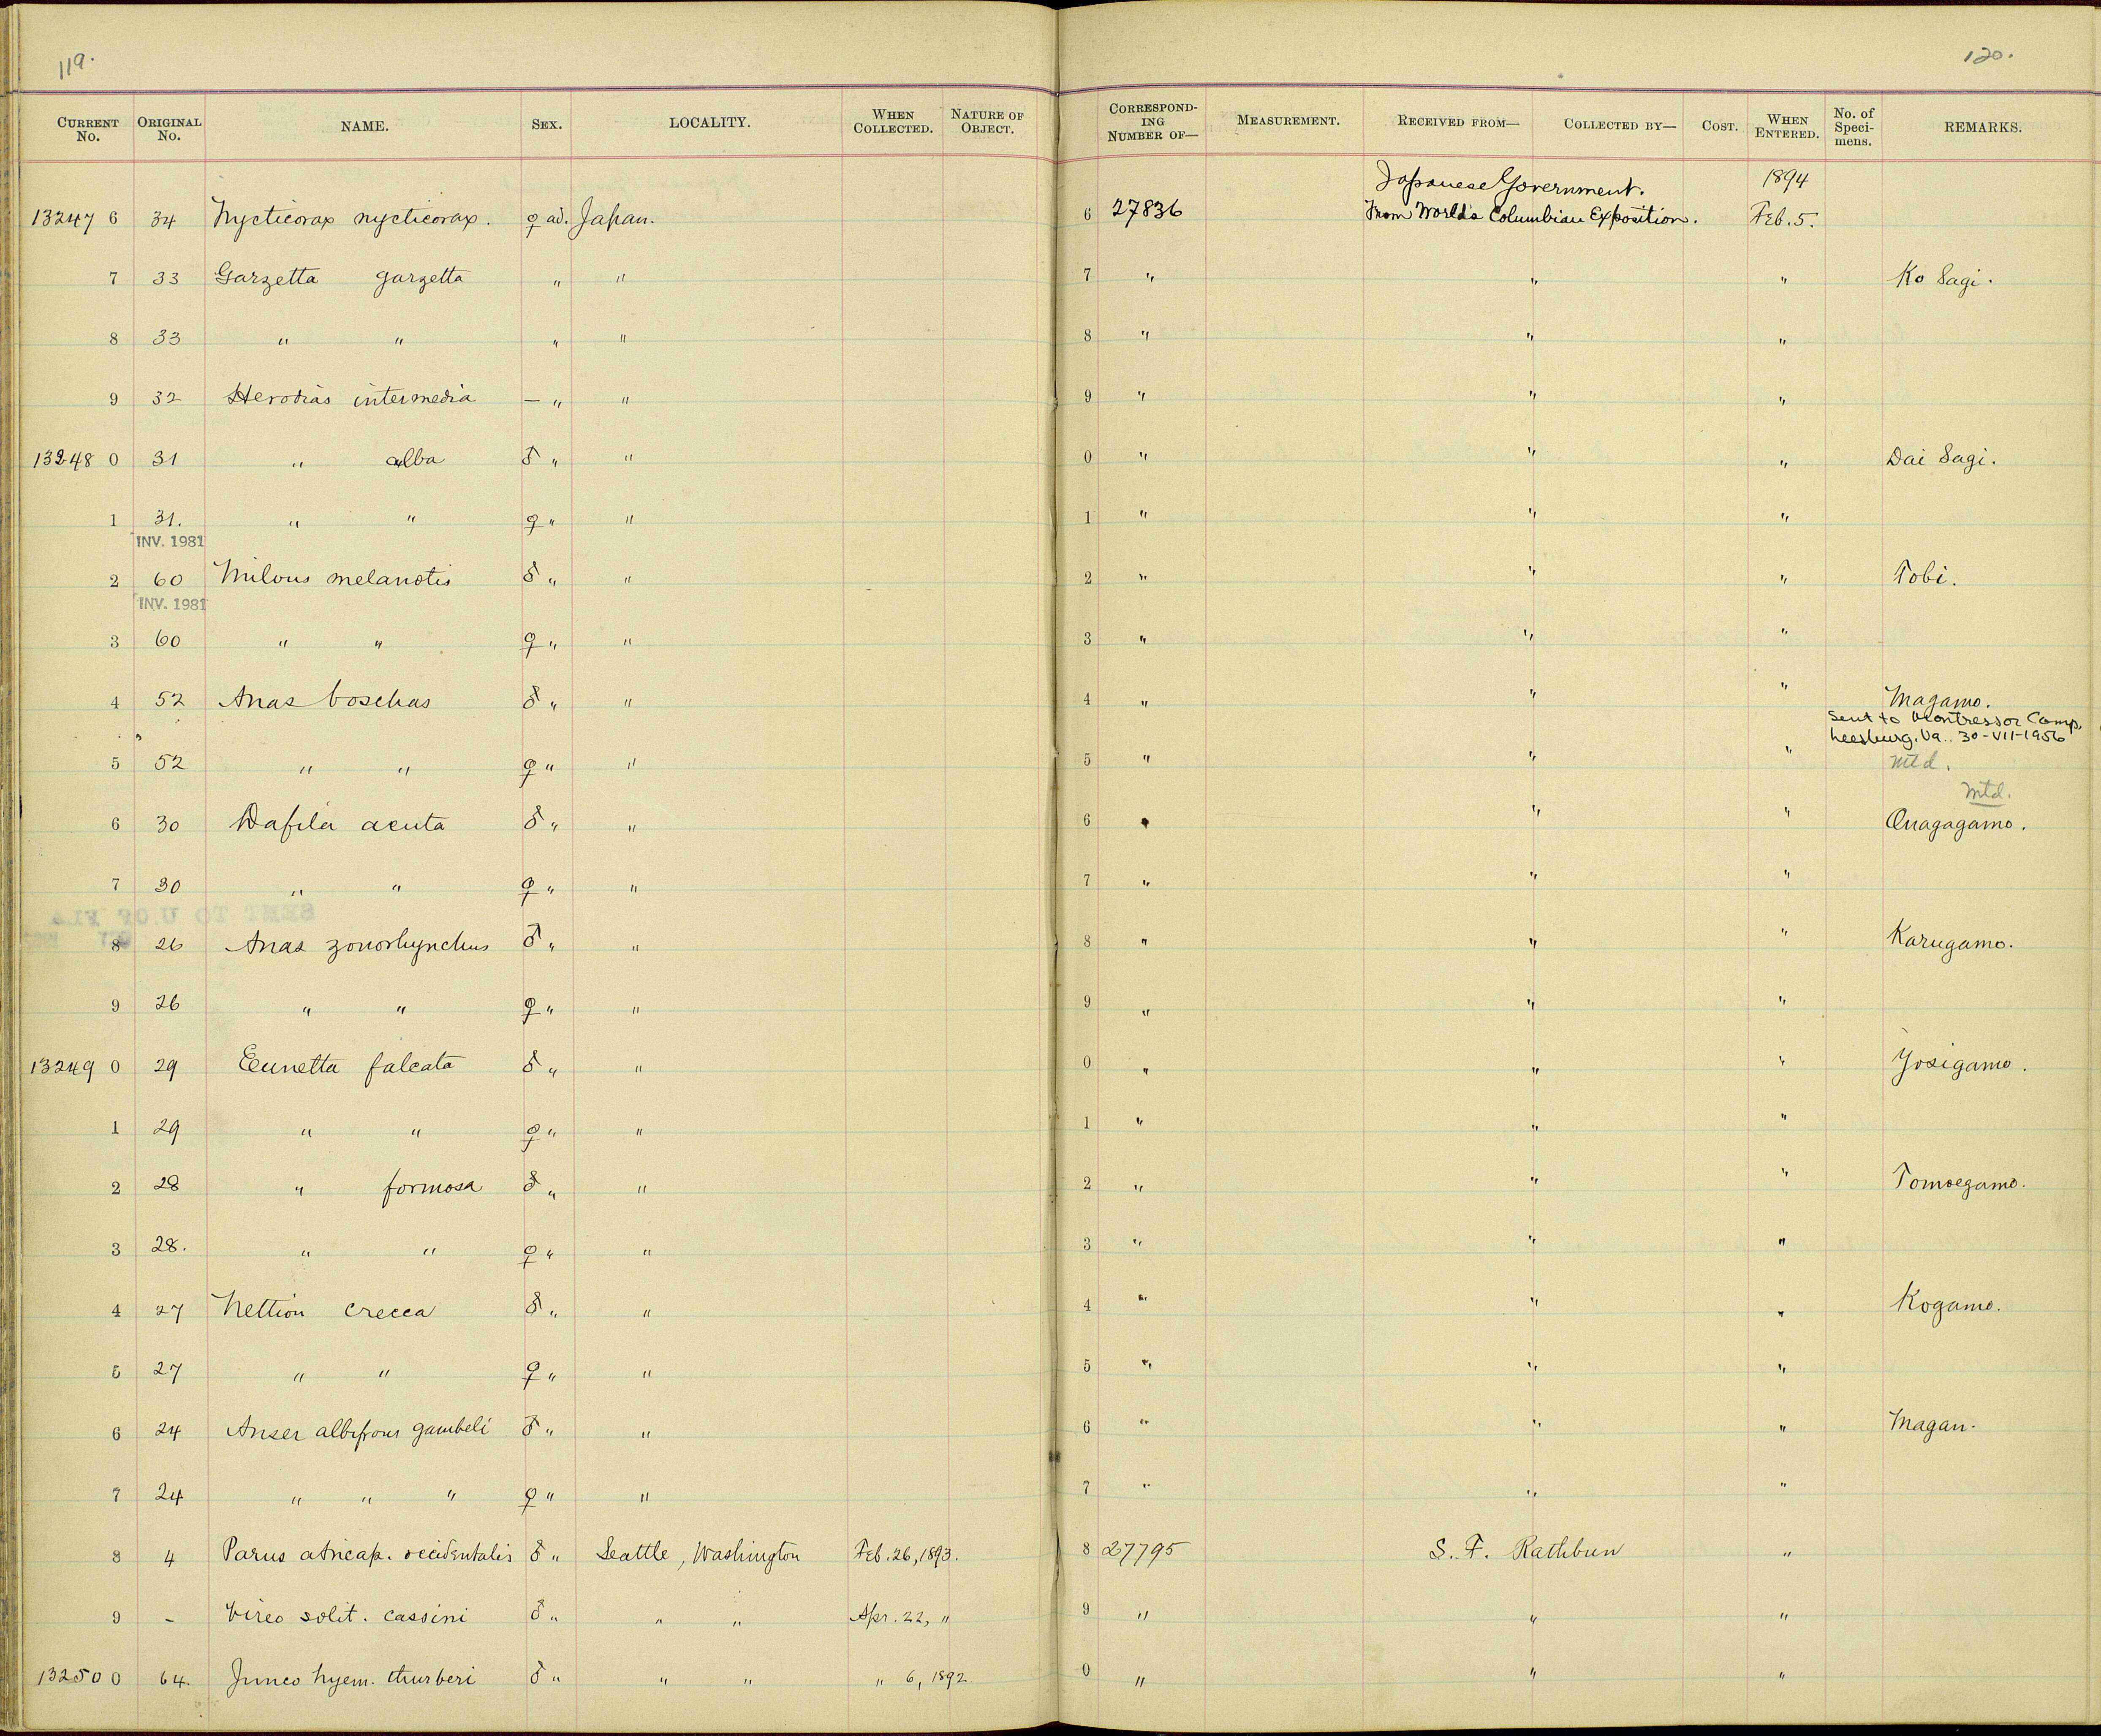 119.
120.
CURRENT No. ORIGINAL No. NAME. SEX. LOCALITY. WHEN COLLECTED. NATURE OF OBJECT. CORRESPONDING NUMBER OF— MEASUREMENT. RECEIVED FROM— COLLECTED BY— COST. WHEN ENTERED. No. of Specimens. REMARKS.
Japanese Government. 1894
13247 6 34 Nycticorax nycticorax. ♀ ad. Japan. 6 27836 From World's Columbian Exposition. Feb. 5.
7 33 Garzetta garzetta " " 7 " " " Ko Sagi.
8 33 " " " " 8 " " "
9 32 Herodias intermedia – " " 9 " " "
13248 0 31 " alba ♂ " " 0 " " " Dai Sagi.
1 31. " " ♀ " " 1 " " "
INV. 1981
2 60 Milvus melanotis ♂ " " 2 " " " Tobi.
INV. 1981
3 60 " " ♀ " " 3 " " "
4 52 Anas boschas ♂ " " 4 " " " Magamo.
Sent to Montressor Camp,
Leesburg, Va.. 30-VII-1956
5 52 " " ♀ " " 5 " " " Mtd.
Mtd.
6 30 Dafila acuta ♂ " " 6 " " " Onagagamo.
7 30 " " ♀ " " 7 " " "
SENT TO U. OF FLA
8 26 Anas zonorhynchus ♂ " " 8 " " " Karugamo.
9 26 " " ♀ " " 9 " " "
13249 0 29 Eunetta falcata ♂ " " 0 " " " Yosigamo.
1 29 " " ♀ " " 1 " " "
2 28 " formosa ♂ " " 2 " " " Tomoegamo.
3 28. " " ♀ " " 3 " " "
4 27 Nettion crecca ♂ " " 4 " " " Kogamo.
5 27 " " ♀ " " 5 " " "
6 24 Anser albifrons gambeli ♂ " " 6 " " " Magan.
7 24 " " " ♀ " " 7 " " "
8 4 Parus atricap. occidentalis ♂ " Seattle, Washington Feb. 26, 1893. 8 27795 S. F. Rathbun "
9 – Vireo solit. cassini ♂ " " " Apr. 22, " 9 " " "
13250 0 64. Junco hyem. thurberi ♂ " " " " 6, 1892 0 " " "